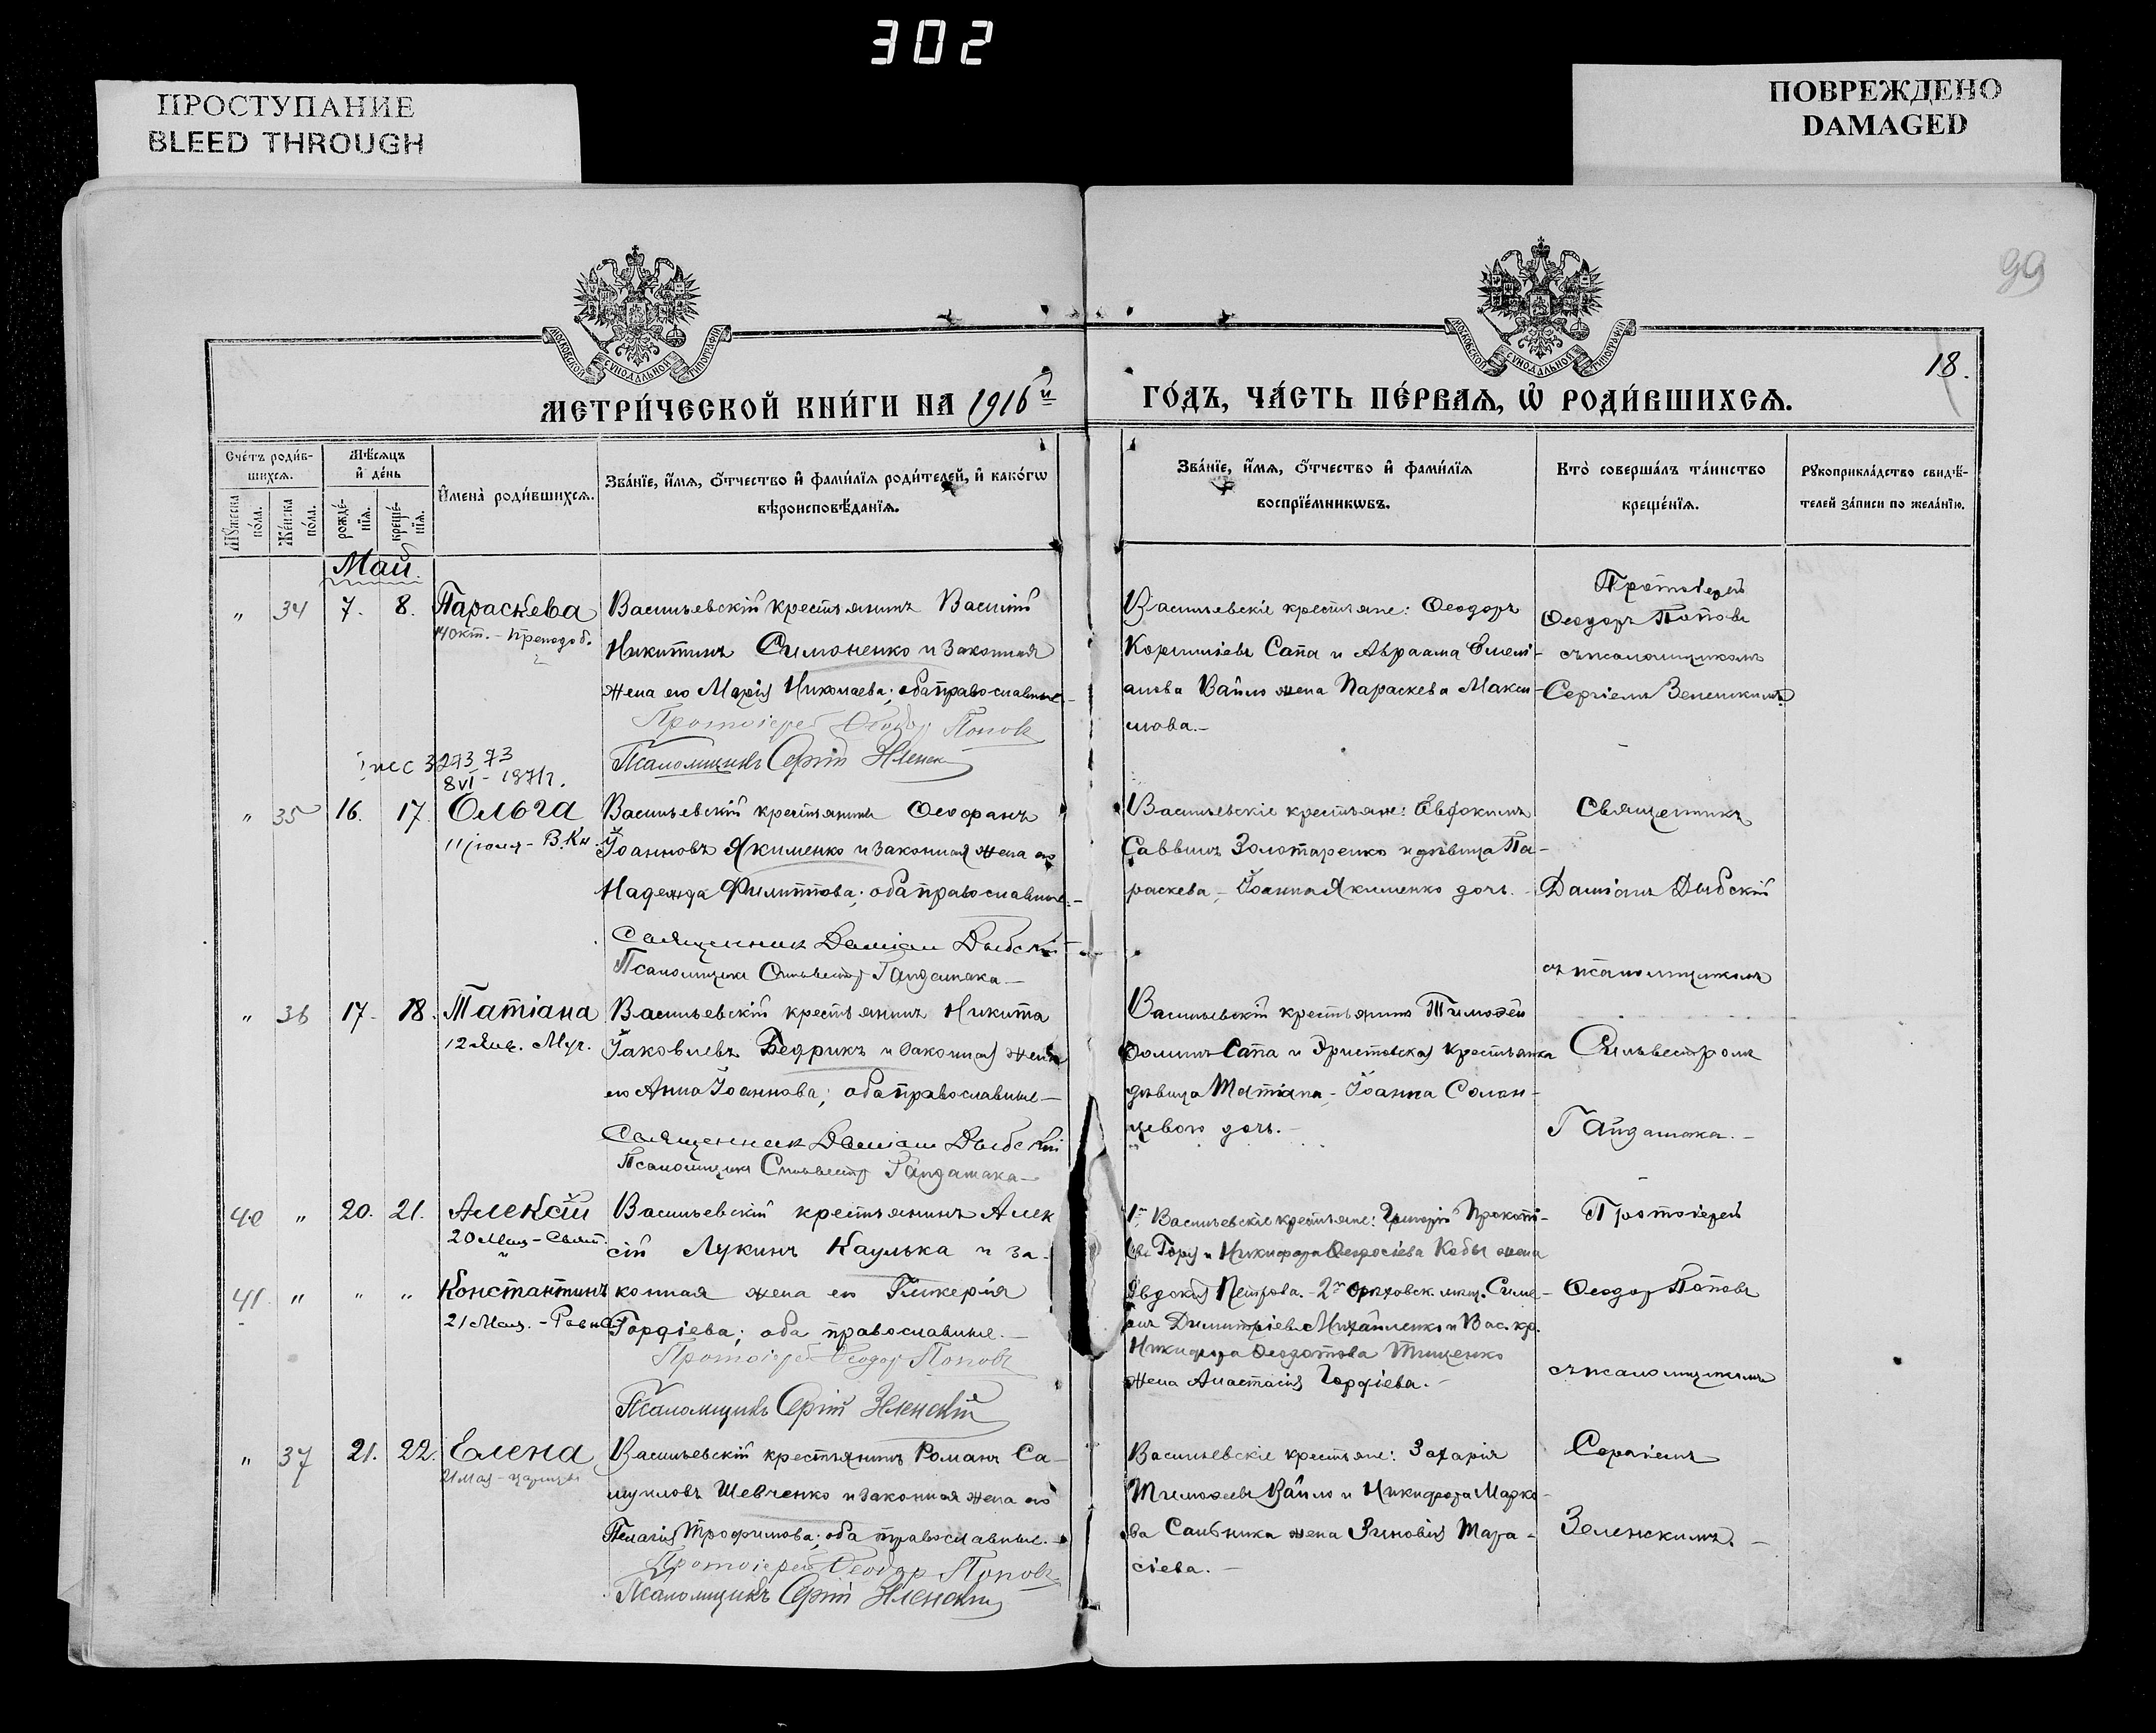 302
ПРОСТУПАНИЕ
BLEED THROUGH
ПОВРЕЖДЕНО
DAMAGED
99
18.
МОСКОВСКОЙ СѴНОДАЛЬНОЙ ТИПОГРАФІИ
МОСКОВСКОЙ СѴНОДАЛЬНОЙ ТИПОГРАФІИ
МЕТРИ́ЧЕСКОЙ КНИ́ГИ НА 1916й ГО́ДЪ, ЧА́СТЬ ПЕ́РВАѦ, Ѡ҆ РОДИ́ВШИХСѦ.
Сче́тъ роди́в-
шихсѧ.
Мѣ́сѧцъ
и҆ де́нь
Мꙋ́жеска по́ла.
Же́нска по́ла.
рожде́-
нїѧ.
креще́-
нїѧ.
И҆мена̀ роди́вшихсѧ.
Зва́нїе, и҆́мѧ, ѻ҆́тчество и҆ фами́лїѧ роди́телей, и҆ како́гѡ
вѣроисповѣ́данїѧ.
Зва́нїе, и҆́мѧ, ѻ҆́тчество и҆ фами́лїѧ
воспрїе́мникѡвъ.
Кто̀ соверша́лъ та́инство
креще́нїѧ.
Рꙋкоприкла́дство свидѣ́-
телей за́писи по жела́нїю.
Май.
" 34 7. 8. Параскева
14 окт. - преподоб.
Васильевскій крестьянинъ Василій
Никитинъ Симоненко и законная
жена его Марія Николаева; оба православные.-
Протоіерей Ѳеодор Попов
Псаломщикъ Сергій Зеленск
Васильевскіе крестьяне: Ѳеодоръ
Корниліевъ Сапа и Авраама Емелі-
анова Вайло жена Параскева Макси-
мова.-
Протоіерей
Ѳеодоръ Поповъ
съ псаломщикомъ
Сергіемъ Зеленскимъ
327373
8 VI - 1971г.
" 35 16. 17. Ольга
11 іюля - В. Кн.
Васильевскій крестьянинъ Ѳеофанъ
Іоанновъ Якименко и законная жена его
Надежда Филиппова; оба православные.-
Священник Даміан Дыбскій
Псаломщикъ Сильвестр Гайдамака-
Васильевскіе крестьяне: Евфокимъ
Саввинъ Золотаренко и дѣвица Па-
раскева, Іоанна Якименко дочь. -
Священникъ
Даміанъ Дыбскій
съ псаломщикомъ
Сильвестромъ
Гайдамака. -
" 36 17. 18. Татіана
12 Янв. Муч.
Васильевскій крестьянинъ Никита
Іаковлевъ Бедрикъ и законная жена
его Анна Іоаннова; оба православные-
Священник Даміан Дыбскій
Псаломщикъ Сильвестр Гайдамака-
Васильевскій крестьянинъ Тимоѳей
Ѳоминъ Сапа и крестьянка
дѣвица Татіана, Іоанна Солон-
цевого дочь. -
40 " 20. 21. Алексій
20 Мая - Свят.
Васильевскій крестьянинъ Алек
сій Лукинъ Каулька и за-
41. " " " Константинъ
21 Мая. - Равн.
конная жена его Гликерія
Гордіева; оба православные. -
Протоіерей Ѳеодор Поповъ
Псаломщикъ Сергій Зеленскій
1го Васильевскіе крестьяне: Григорій Прокопі-
евъ и Никифора Ѳеодосіева Кобы жена
Евдокія Петрова. - 2го Орѣховск. мѣщ. Симе-
онъ Димитріевъ Михайленко и Вас. кр.
Никифора Ѳедотова Тищенко
жена Анастасія Гордіева. -
Протоіерей
Ѳеодор Поповъ
съ псаломщикомъ
Сергіемъ
Зеленскимъ. -
" 37 21. 22. Елена
21 Мая - царицы
Васильевскій крестьянинъ Романъ Са-
муиловъ Шевченко и законная жена его
Пелагія Трофимова; оба православные. -
Протоіерей Ѳеодор Поповъ
Псаломщикъ Сергій Зеленскій
Васильевскіе крестьяне: Захарія
Тимоѳеевъ Вайло и Никифора Марко-
ва Санбника жена Зиновія Тара-
сіева. -